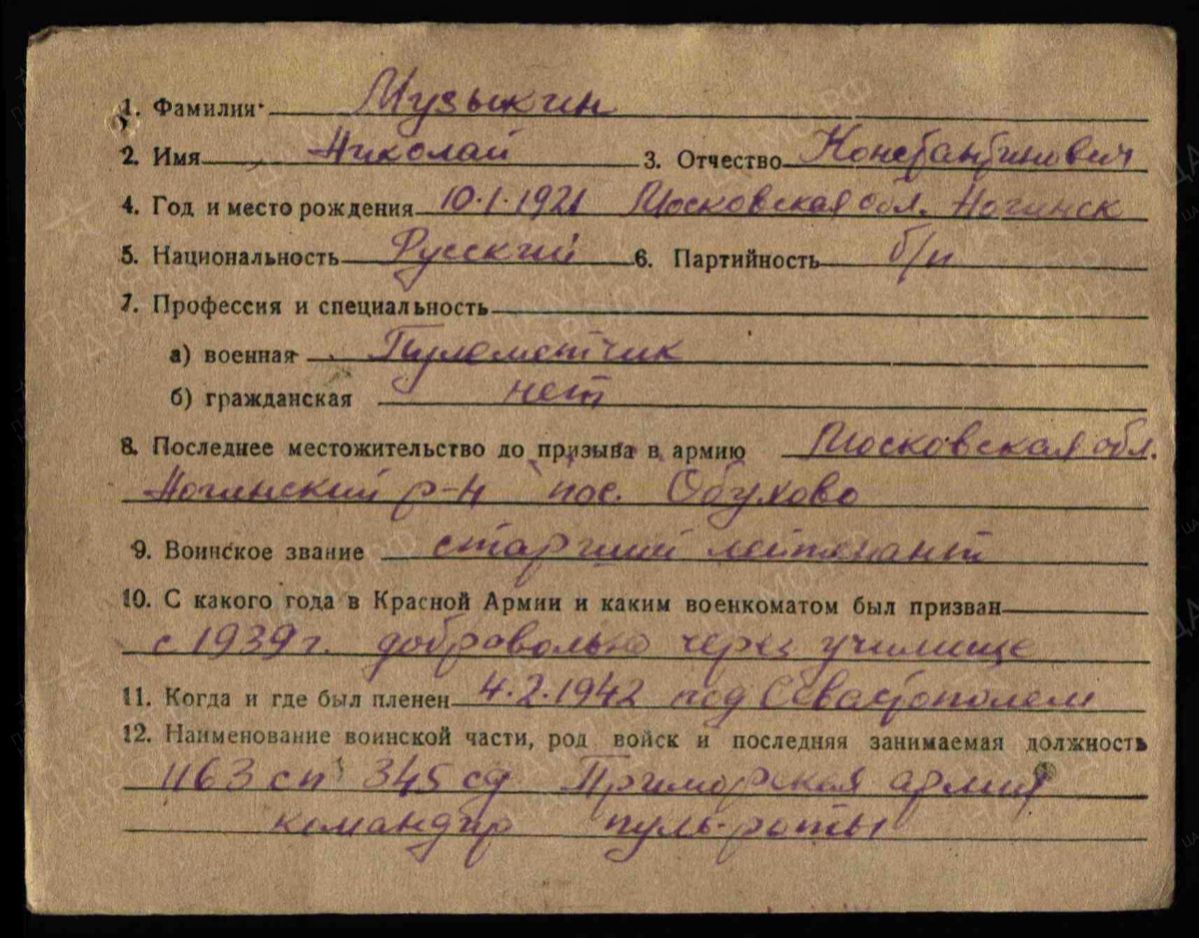 1. Фамилия Музыкин
2. Имя Николай 3. Отчество Константинович
4. Год и место рождения 10.1.1921 Московская обл. Ногинск
5. Национальность Русский 6. Партийность б/п
7. Профессия и специальность
а) военная Пулеметчик
б) гражданская нет
8. Последнее местожительство до призыва в армию Московская обл.
Ногинский р-н пос. Обухово
9. Воинское звание старший лейтенант
10. С какого года в Красной Армии и каким военкоматом был призван
с 1939 г. добровольно через училище
11. Когда и где был пленен 4.2.1942 под Севастополем
12. Наименование воинской части, род войск и последняя занимаемая должность
1163 сп 345 сд Приморская армия
командир пуль-роты